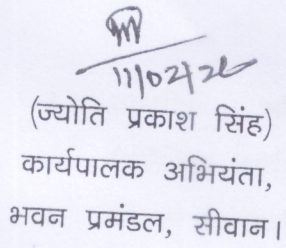 11/02/26
(ज्योति प्रकाश सिंह)
कार्यपालक अभियंता,
भवन प्रमंडल, सीवान।